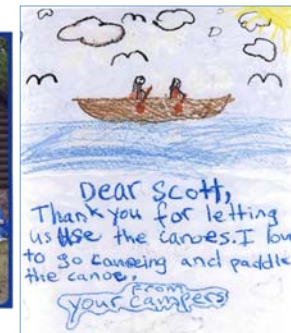 Dear Scott,
Thank you for letting
us use the canoes. I lov
to go canoeing and paddle
the canoe.
From
your campers